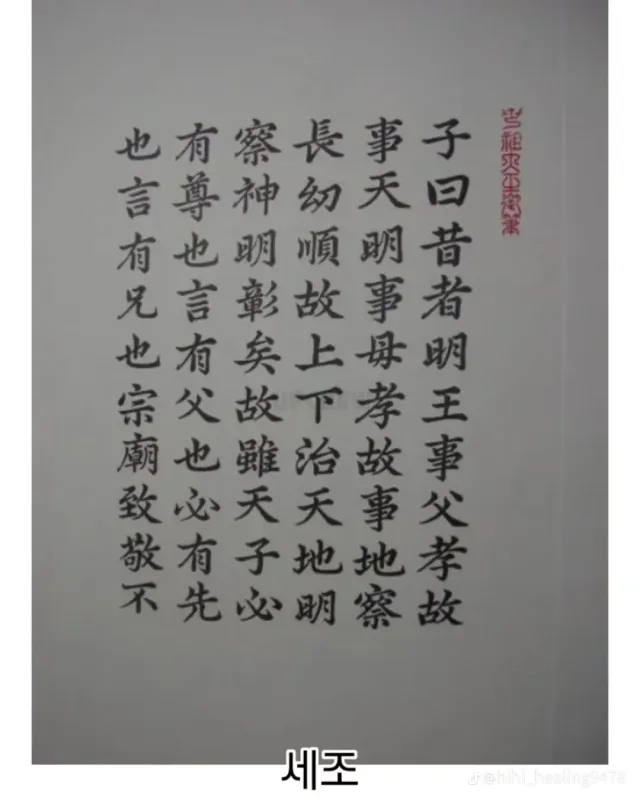 世祖大王御筆
子曰昔者明王事父孝故
事天明事母孝故事地察
長幼順故上下治天地明
察神明彰矣故雖天子必
有尊也言有父也必有先
也言有兄也宗廟致敬不
세조